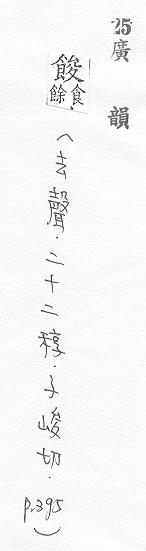 25廣韻
餕
食餘
(去聲.二十二稕.子峻切.p.395)